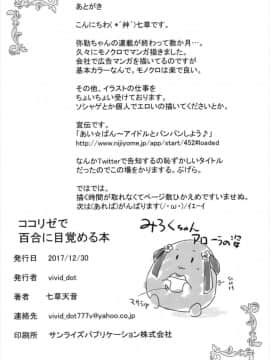 あとがき
こんにちわ( *´艸`)七草です。
弥勒ちゃんの連載が終わって数か月…。
久々にモノクロでマンガ描きました。
会社で広告マンガを描いてるのですが
基本カラーなんで、モノクロは楽で良い。
その他。イラストの仕事を
ちょいちょい受けております。
ソシャゲとか個人でエロいの描いてくださいとか。
宣伝です。
「あい☆ぱん~アイドルとパンパンしよう♪」
http://www.nijiyome.com/app/start/452#loaded
なんかTwitterで告知するの恥ずかしいタイトル
だったのでこの場をかります。ぶるぶる。
ではでは。
描く時間が取れなくてページ数ひかえめですいません。
次は(あれば)がんばります(/・ω・)/ｲｪｰｲ
ココリゼで
百合に目覚める本
発行日 2017/12/30
発行者 vivid_dot
著者 七草天音
連絡先 vivid_dot777v@yahoo.co.jp
印刷所 サンライズパブリケーション株式会社
みろくちゃん
アローラの姿